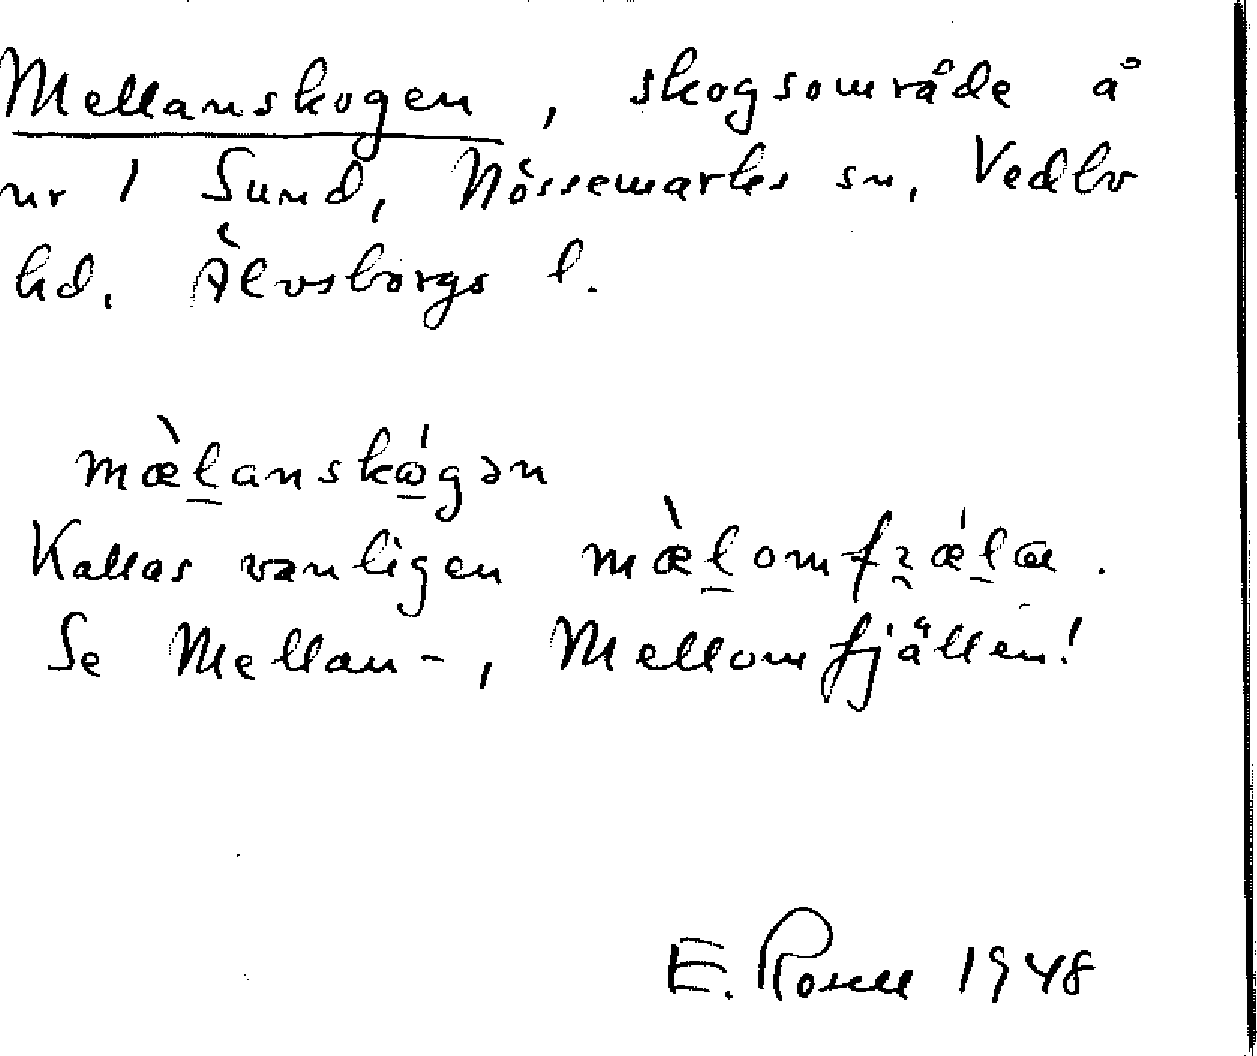 Mellanskogen, skogsområde å
nr 1 Sund, Nössemarks sn, Vedbo
hd, Älvsborgs l.
mæ̀l̲anskɷ̲́gən
Kallas vanligen mæ̀l̲omfȷǽl̲a.
Se Mellan-, Mellomfjällen!
E. Rosell 1948